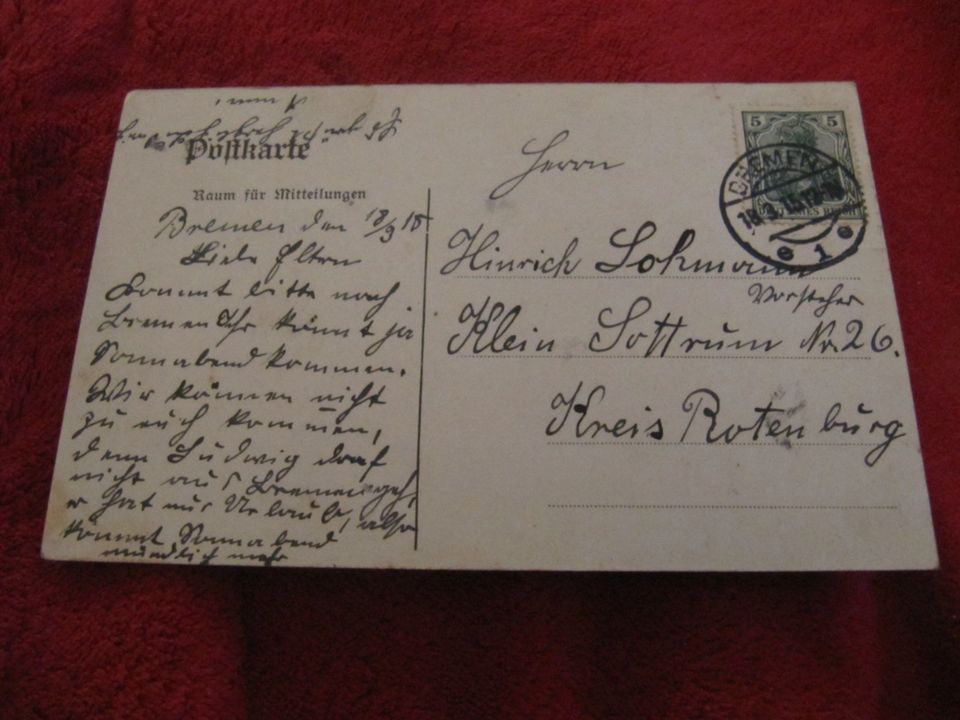 Postkarte
Raum für Mitteilungen
Bremen den 18/3 15
Liebe Eltern
Kommt bitte nach
Bremen Ihr könnt ja
Sonnabend kommen.
Wir können nicht
zu euch kommen,
denn Ludwig darf
nicht aus Bremen geh,
er hat nur Urlaub, also
kommt Sonnabend
mündlich mehr
5 5
DEUTSCHES REICH
BREMEN
1
Herrn
Hinrich Lohmann
Vorsteher
Klein Sottrum Nr. 26.
Kreis Rotenburg